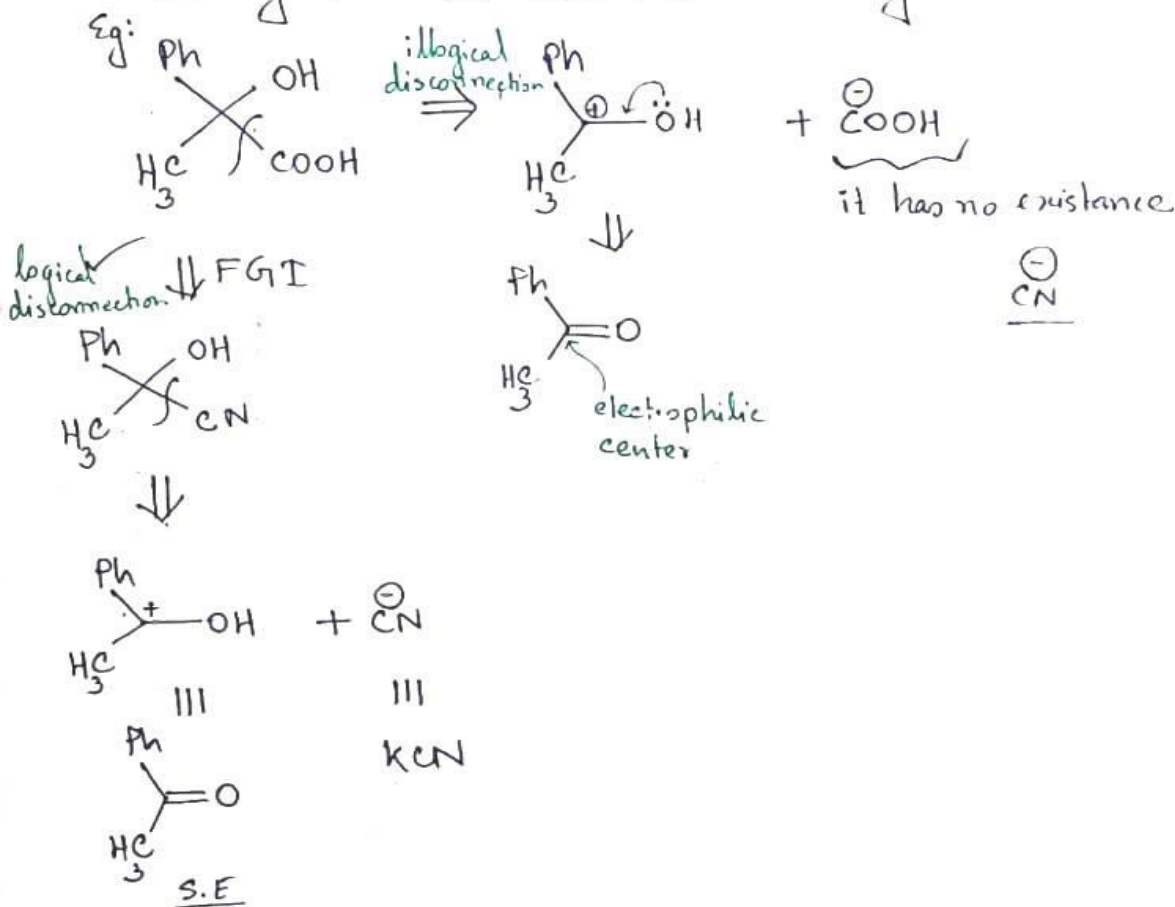 Eg:
Ph
OH
H3C
COOH
illogical
disconnection
⇒
Ph
⊕
ÖH
H3C
+ ⊖COOH
it has no existance
⊖
CN
⇓
Ph
O
H3C
electrophilic
center
logical
disconnection
⇓ FGI
Ph
OH
H3C
CN
⇓
Ph
+
OH
H3C
+ ⊖CN
|||
|||
Ph
O
H3C
KCN
S.E